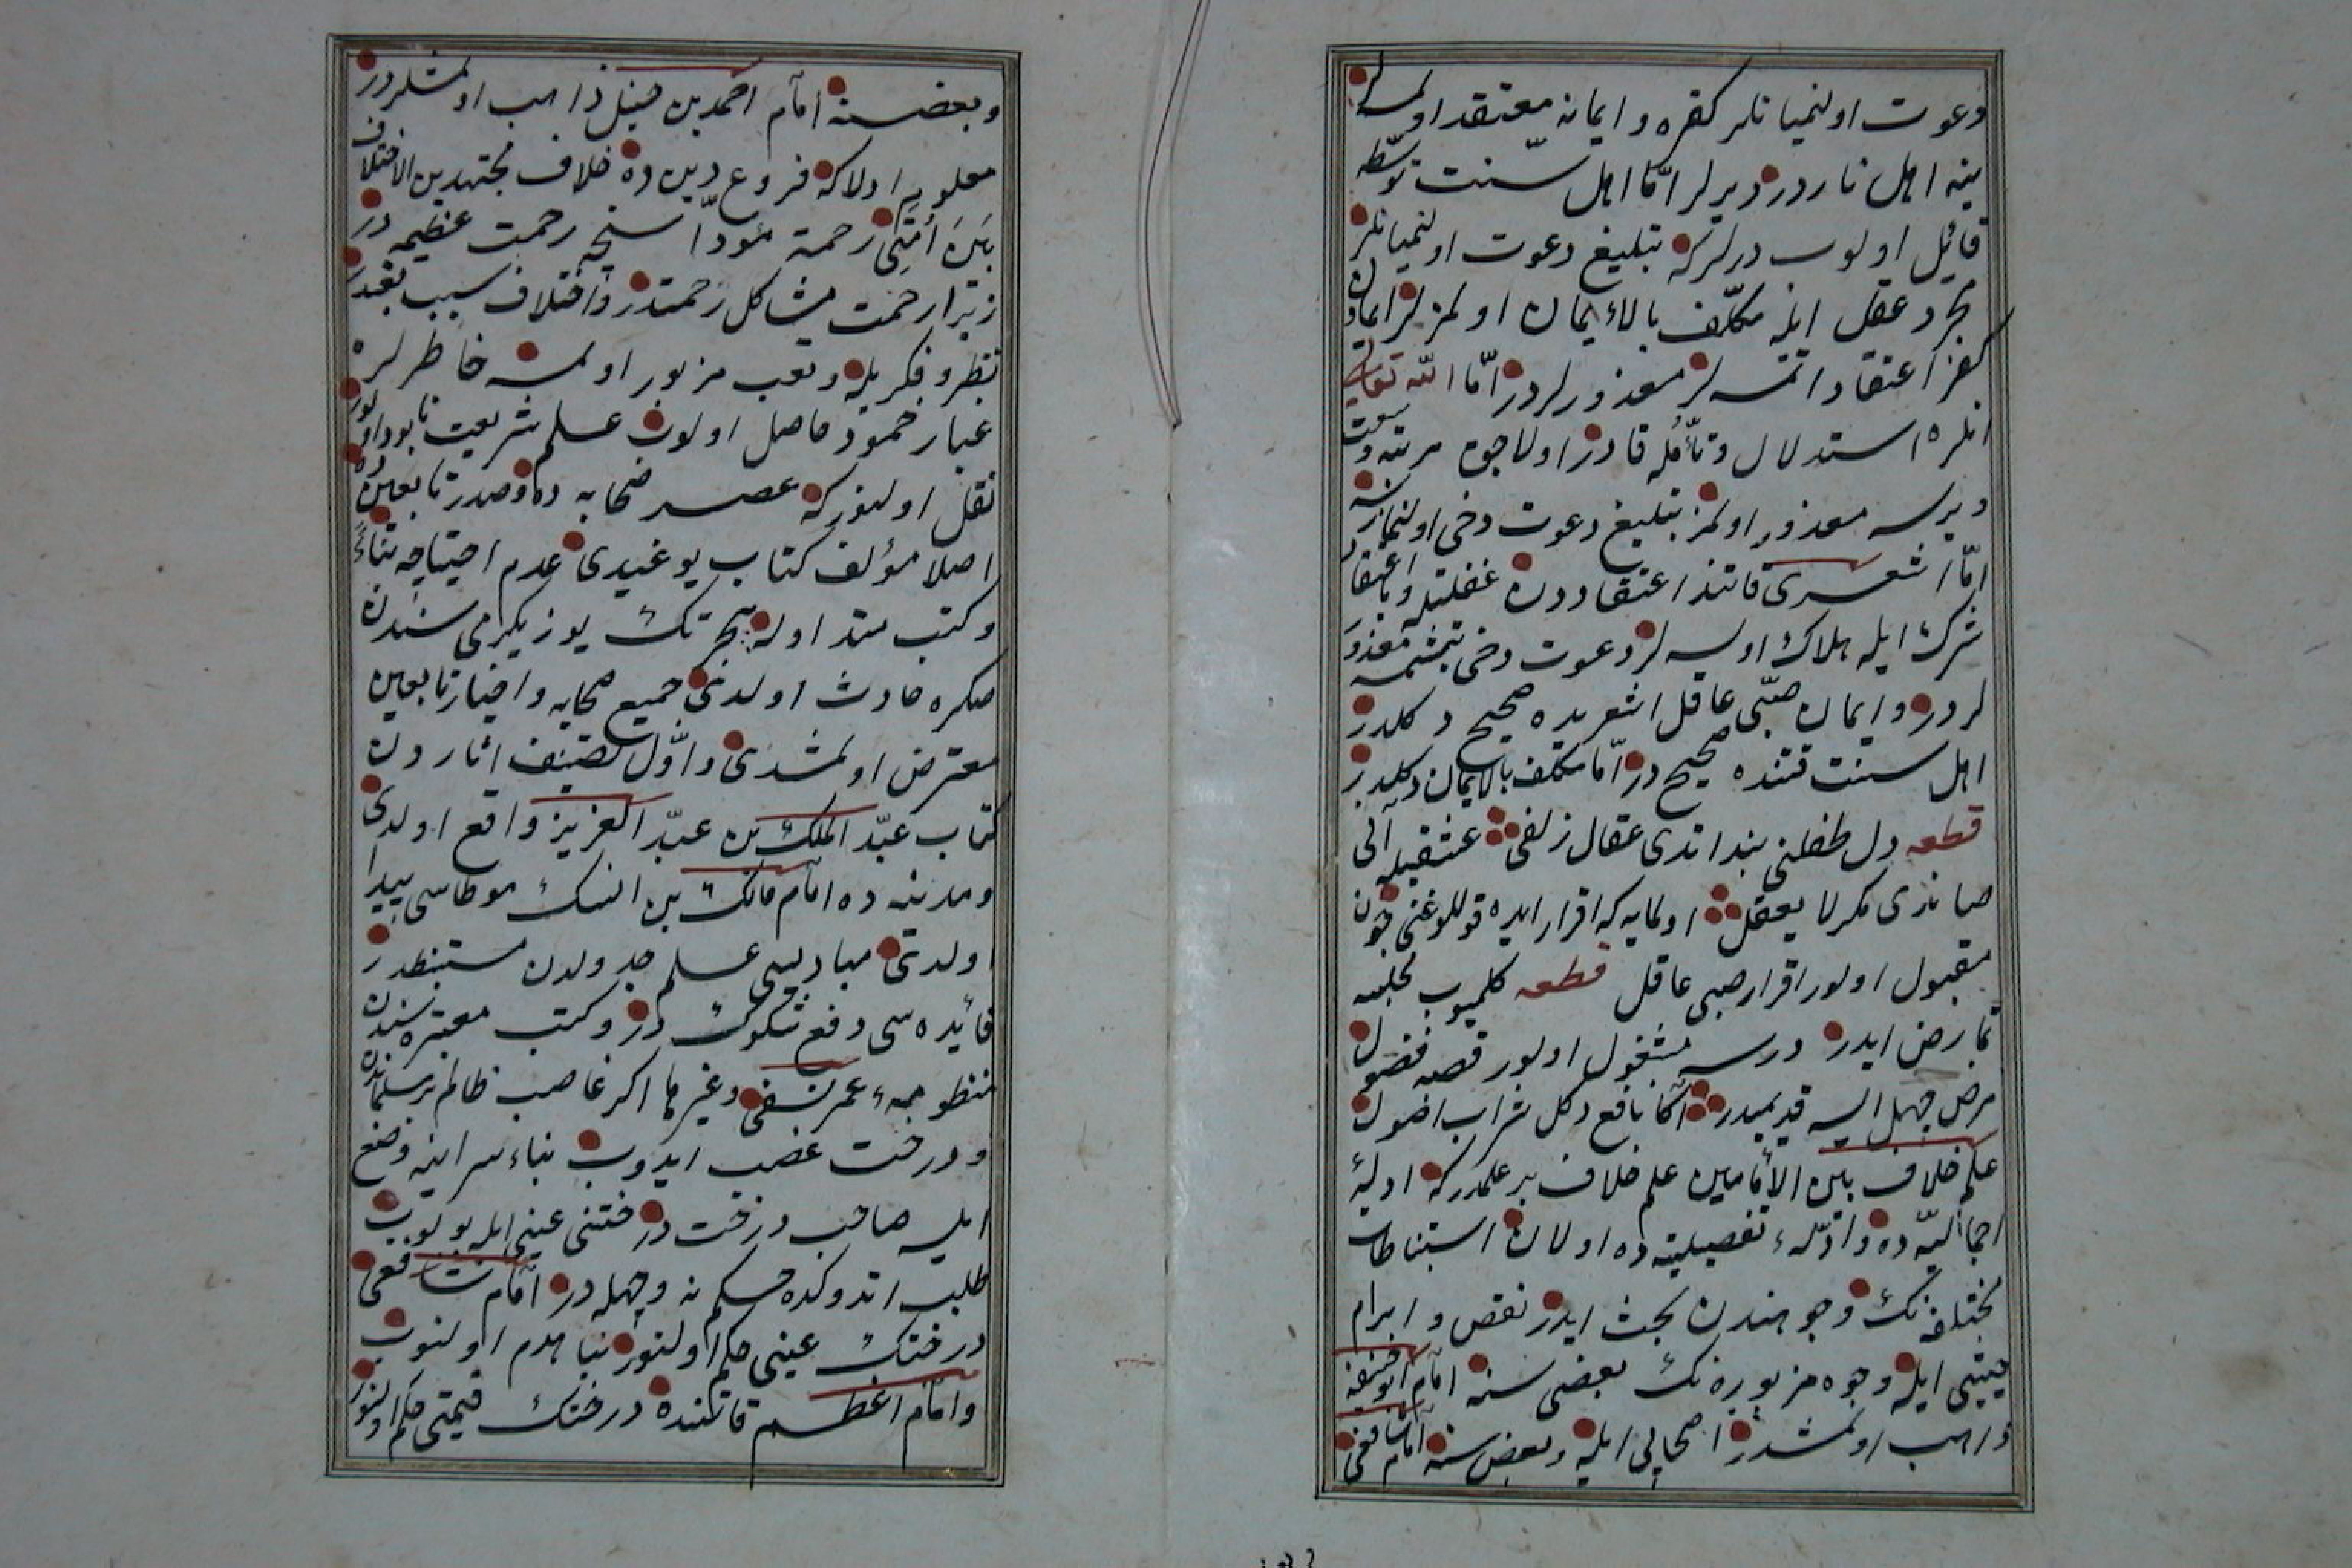 دعوت اولنميانلر كفره و ايمانه معتقد اولسه لر
ينه اهل ناردر ديرلر امّا اهل سنّت توسّطه
قائل اولوب ديرلركه تبليغ دعوت اولنميانلر
مجرد عقل ايله مكلّف بالايمان اولمزلر ايمان و
كفر اعتقاد اتمسه لر معذورلردر امّا الله تعالى
انلره استدلال و تأمّله قادر اولاجق مرتبه وسعت
ويرسه معذور اولمز تبليغ دعوت دخى اولنمازسه
امّا اشعرى قاتنده اعتقاددن غفلتله و يا اعتقاد
شرك ايله هلاك اولسه لر دعوت دخى يتشمسه معذور
لردر و ايمان صبّى عاقل اشعريده صحيح دكلدر
اهل سنت قتنده صحيح در امّا مكلف بالايمان دكلدر
قطعه دل طفلنى بند اتدى عقال زلفى عشقيله آنى
صاندى مكر لا يعقل اولمايه كه اقرار ايده قوللوغنى چون
مقبول اولور اقرار صبى عاقل قطعه كلميوب مجلسه
تمارض ايدر درسه مشغول اولور قصه فضول
مرض جهل ايسه قديميدر آكا نافع دكل شراب اصول
علم خلاف بين الأمامين علم خلاف بر علمدركه ادلهٔ
اجماليّه ده و ادّلهء تفصيليه ده اولان استنباطات
مختلفه نك وجوهندن بحث ايدر نقض و ابرام
حيثيتى ايله وجوه مزبوره نك بعضى سنه امام ابو حنيفه
ذاهب اولمشدر اصحابى ايله و بعض سنه امام شافعى
و بعضسنه امام احمد بن حنبل ذاهب اولمشلردر
معلوم اولا كه فروع دين ده خلاف مجتهدين الاختلاف
بَيْنَ اُمَّتِى رحمة مؤدّاسنجه رحمت عظيمه در
زيرا رحمت مشاكل زحمتدر و اختلاف سبب تعبدر
نظر و فكريله و تعب مزبور اولمسه خاطرلره
غبار خمود حاصل اولوب علم شريعت نابود اولور
نقل اولنوركه عصر صحابه ده و صدر تابعين ده
اصلا مؤلف كتاب يوغيدى عدم احتياجه بناءً
و كتب متداوله هجرتك يوز يكرمى سنه سندن
صكره حادث اولدى جميع صحابه و اخيار تابعين
معترض اولمشدى و اوّل تصنيف اثاردن
كتاب عبد الملك بن عبد العزيز واقع اولدى
و مدينه ده امام مالك بن انسك موطاسى پيدا
اولدى مباديسى علم جدولدن مستنبطدر
فائده سى دفع شكوك در و كتب معتبره سندن
منظومهء عمر نسفى و غيرها اكر غاصب ظالم بر مسلماندن
و درخت غصب ايدوب بناء سراينه وضع
ايلسه صاحب درخت درختنى عينى ايله بولوب
طلب اتدوكده حكم نه وجهله در امام شافعى
درختك عينى حكم اولنور بنا هدم اولنوب
و امام اعظم قاتنده درختك قيمتى حكم اولنور